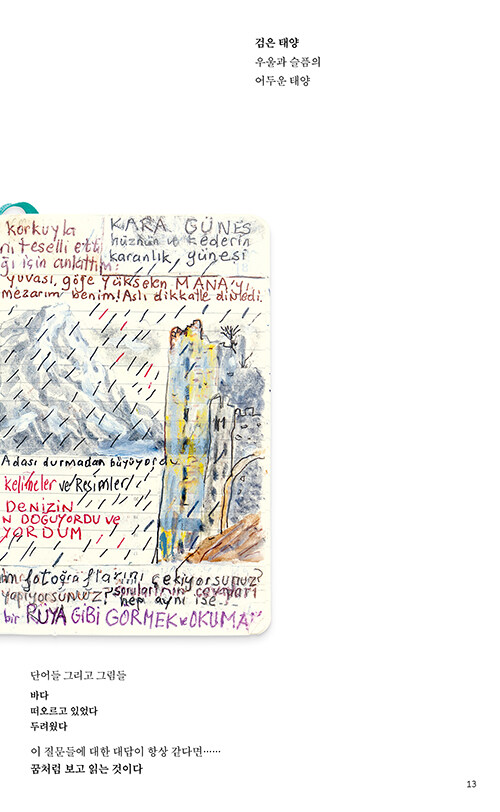 검은 태양
우울과 슬픔의
어두운 태양
korkuyla
teselli etti
ğı için anlattım.
KARA GÜNEŞ
hüznün ve kederin
karanlık güneşi
yuvası, göğe yükselen MANA'yı
mezarım benim! Aslı dikkatle dinledi.
Adası durmadan büyüyordu
kelimeler ve Resimler
DENİZİN
N DOĞUYORDU ve
YORDUM
fotoğraflarını çekiyorsunuz?
yapıyorsunuz? soruların cevapları
hep aynı ise
bir RÜYA GİBİ GÖRMEK ve OKUMAK
단어들 그리고 그림들
바다
떠오르고 있었다
두려웠다
이 질문들에 대한 대답이 항상 같다면……
꿈처럼 보고 읽는 것이다
13